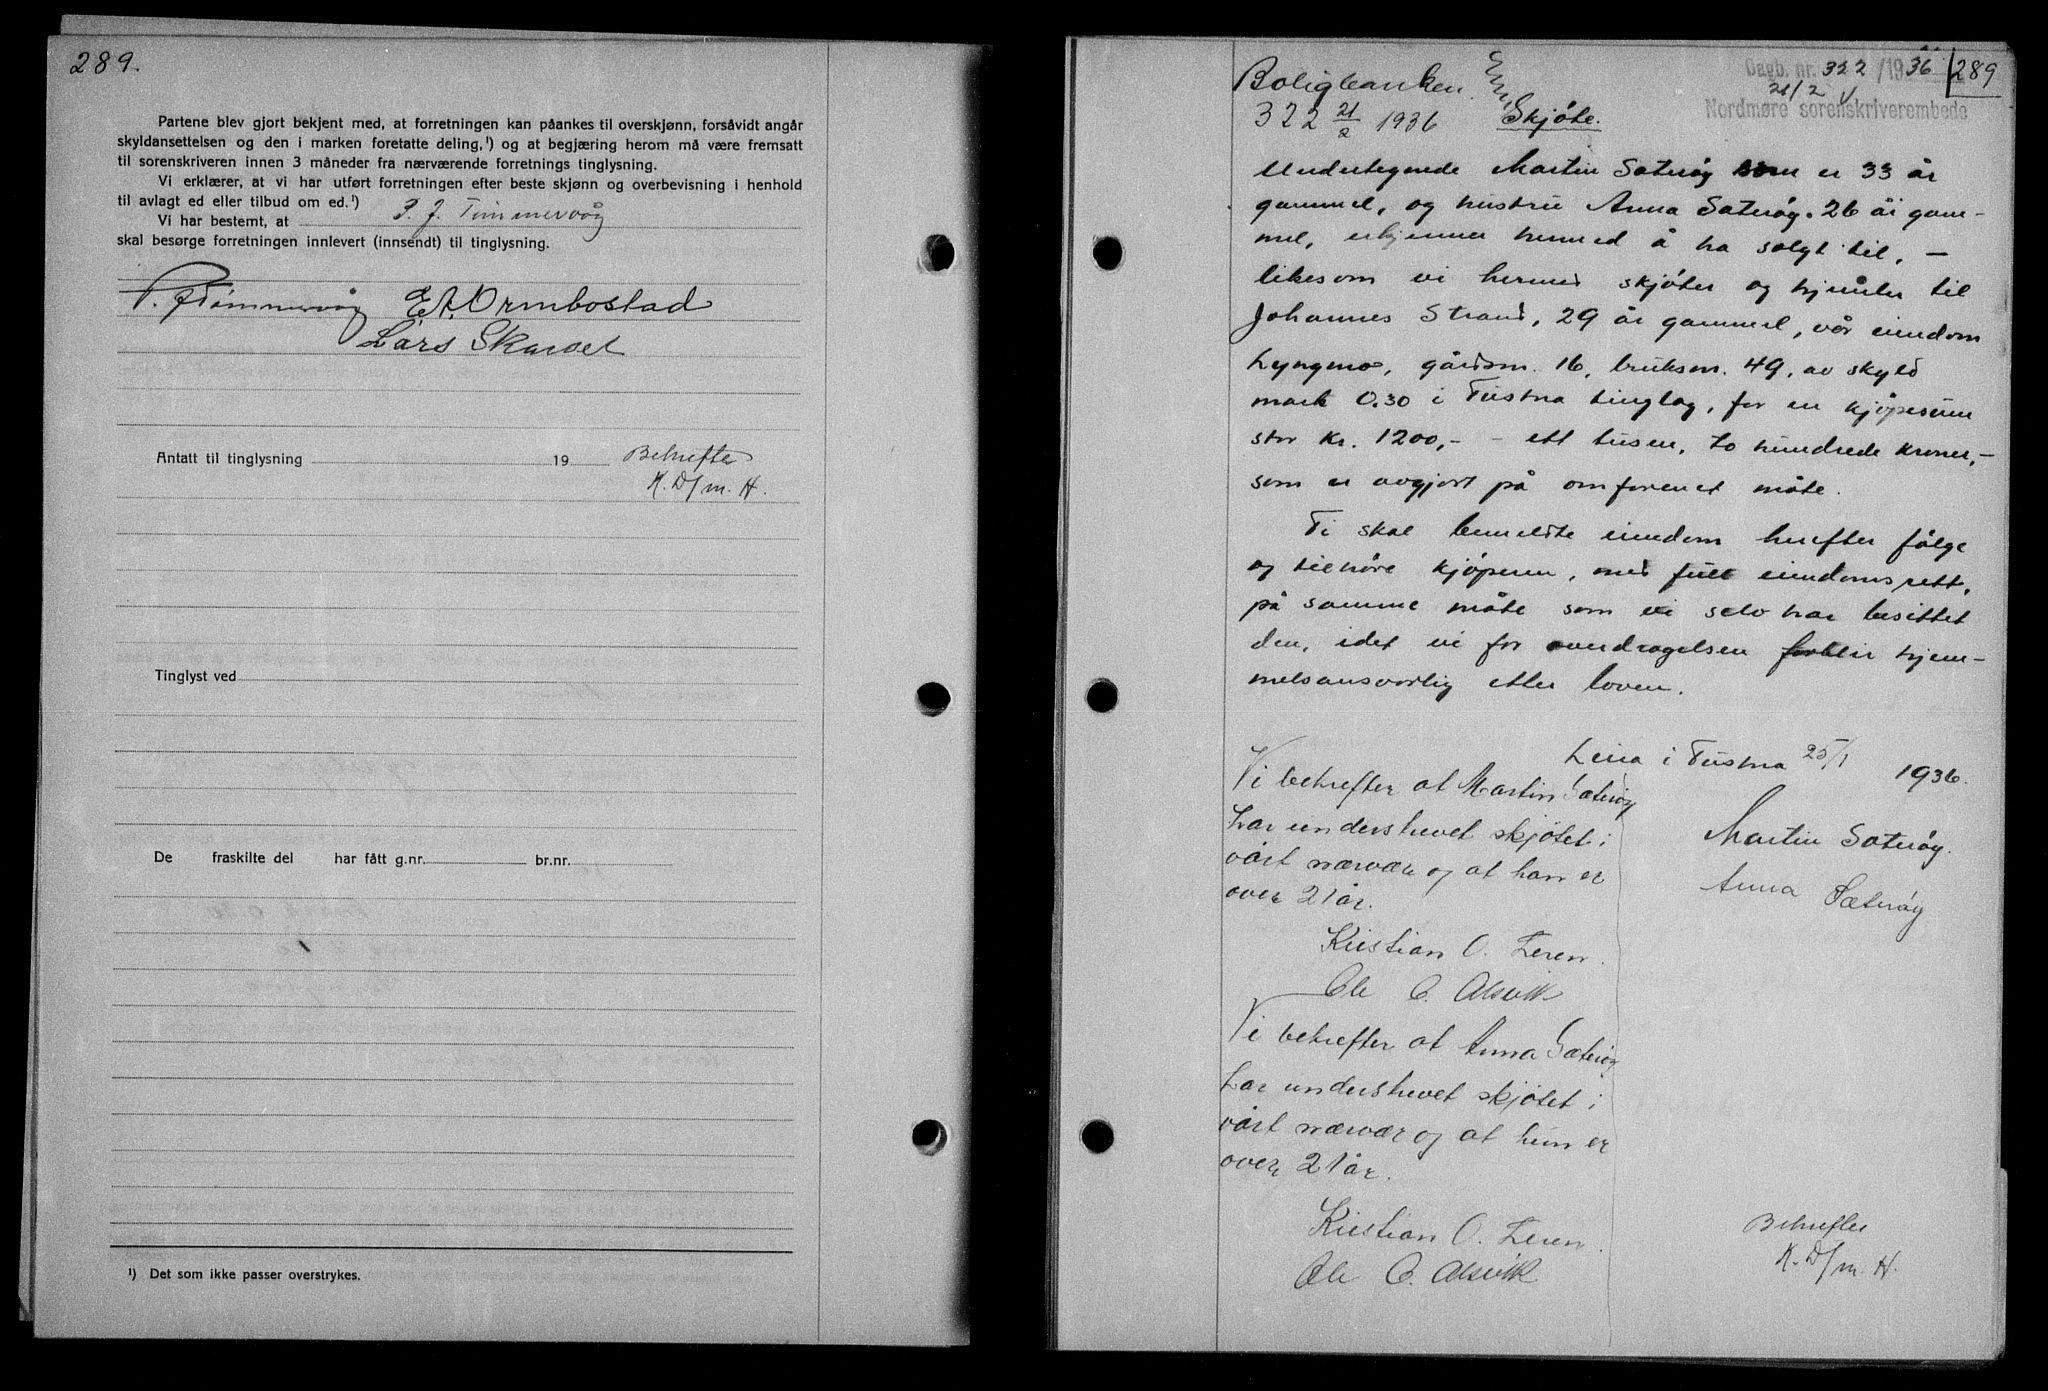 289.
Partene blev gjort bekjent med, at forretningen kan påankes til overskjønn, forsåvidt angår
skyldansettelsen og den i marken foretatte deling,¹) og at begjæring herom må være fremsatt
til sorenskriveren innen 3 måneder fra nærværende forretnings tinglysning.
Vi erklærer, at vi har utført forretningen efter beste skjønn og overbevisning i henhold
til avlagt ed eller tilbud om ed.¹)
Vi har bestemt, at P. J. Tømmervåg
skal besørge forretningen innlevert (innsendt) til tinglysning.
P. J. Tømmervåg E. A. Ormbostad
Lars Skarset
Antatt til tinglysning 19 Bekrefter
K. D/m. H.
Tinglyst ved
De fraskilte del har fått g.nr. br.nr.
¹) Det som ikke passer overstrykes.
Dagb. nr. 322 / 1936 289
21/2
Nordmøre sorenskriverembede
Boligbanken
322 21/2 1936 Skjöte.
Undertegnede Martin Sæteröy som er 33 år
gammel, og hustru Anna Sæteröy. 26 år gam-
mel, erkjenner herved å ha solgt til, -
likesom vi herved skjöter og hjemler til
Johannes Strand, 29 år gammel, vår eiendom
Lyngmo, gårdsnr. 16, bruksnr. 49, av skyld
mark 0.30 i Tustna tinglag, for en kjöpesum
stor kr. 1200,- - ett tusen, to hundrede kroner, -
som er avgjort på omforenet måte.
Ti skal bemeldte eiendom herefter fölge
og tilhöre kjöperen, med full eiendomsrett,
på samme måte som vi selv har besittet
den, idet vi for overdragelsen forblir hjem-
melsansvarlig etter loven.
Leira i Tustna 25/1 1936.
Martin Sæteröy.
Anna Sæteröy
Vi bekrefter at Martin Sæteröy
har underskrevet skjötet i
vårt nærvær og at han er
over 21 år.
Kristian O. Leren.
Ole C. Alsvik
Vi bekrefter at Anna Sæteröy
har underskrevet skjötet i
vårt nærvær og at hun er
over 21 år.
Kristian O. Leren.
Ole C. Alsvik
Bekrefter
K. D/m. H.